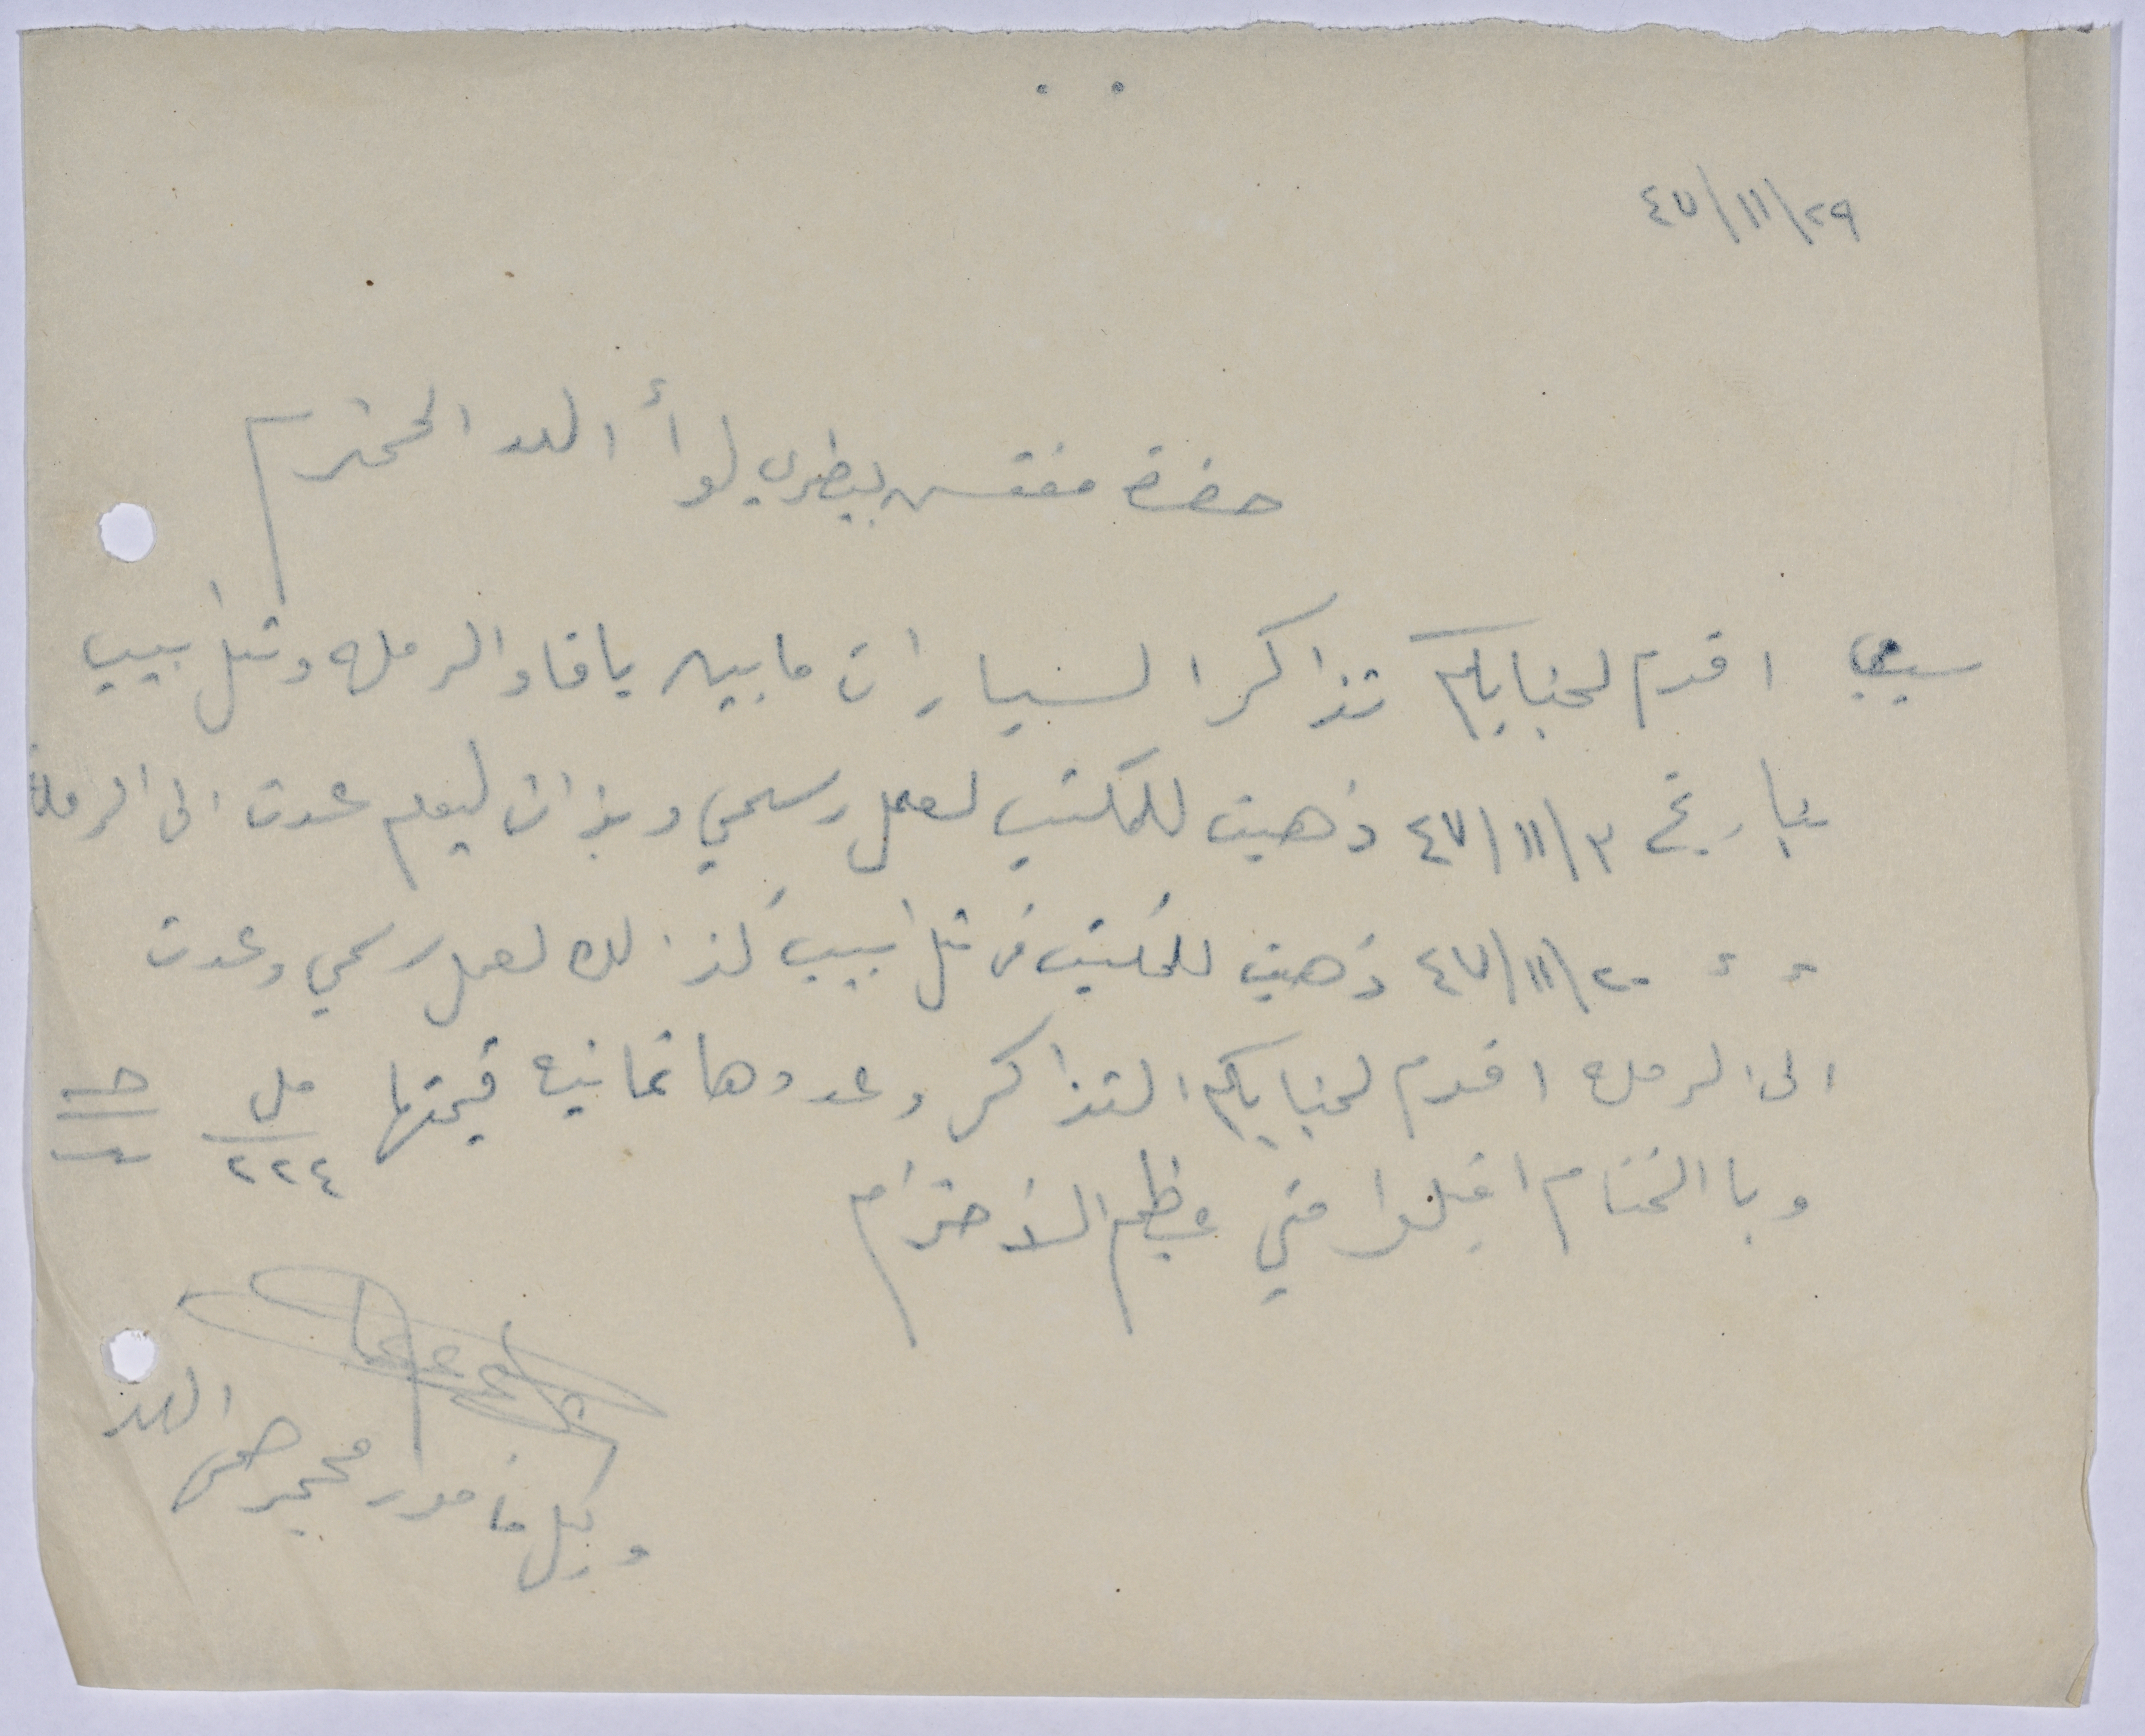 ٤٧/١١/٢٩
حضرة مفتش بيطري لوأ اللد المحترم
سيدي اقدم لجنابكم تذاكر السيارات مابين يافا والرمله وتل ابيب
بتاريخ ٤٧/١١/٣ ذهبت للمكتب لعمل رسمي وبذات ليوم عدت الى الرملة
ء ء ٤٧/١١/٢٠ ذهبت للمكتب في تل ابيب كذلك لعمل رسمي وعدت
الى الرمله اقدم لجنابكم التذاكر وعددها ثمانيه قيمتها مل جـ
٢٢٤
وبا الختام اقبلوا مني عظيم الاحترام
وكيل مأمور محجر صحي اللد